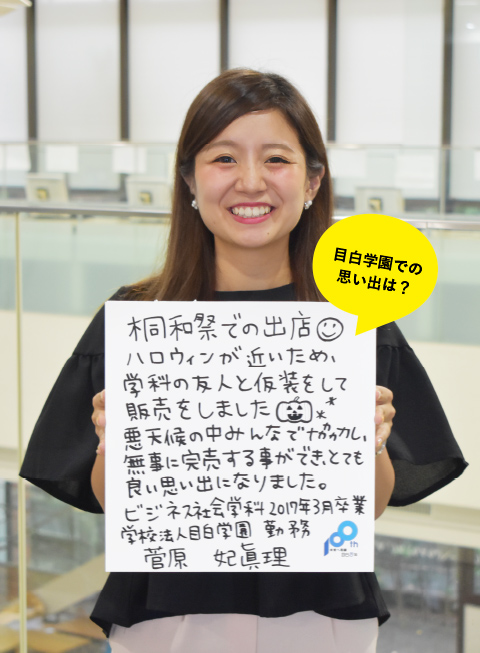 目白学園での
思い出は？
桐和祭での出店
ハロウィンが近いため、
学科の友人と仮装をして
販売をしました
悪天候の中みんなで力を出し、
無事に完売する事ができ、とても
良い思い出になりました。
ビジネス社会学科2017年3月卒業
学校法人目白学園 勤務
菅原 妃眞理
100th